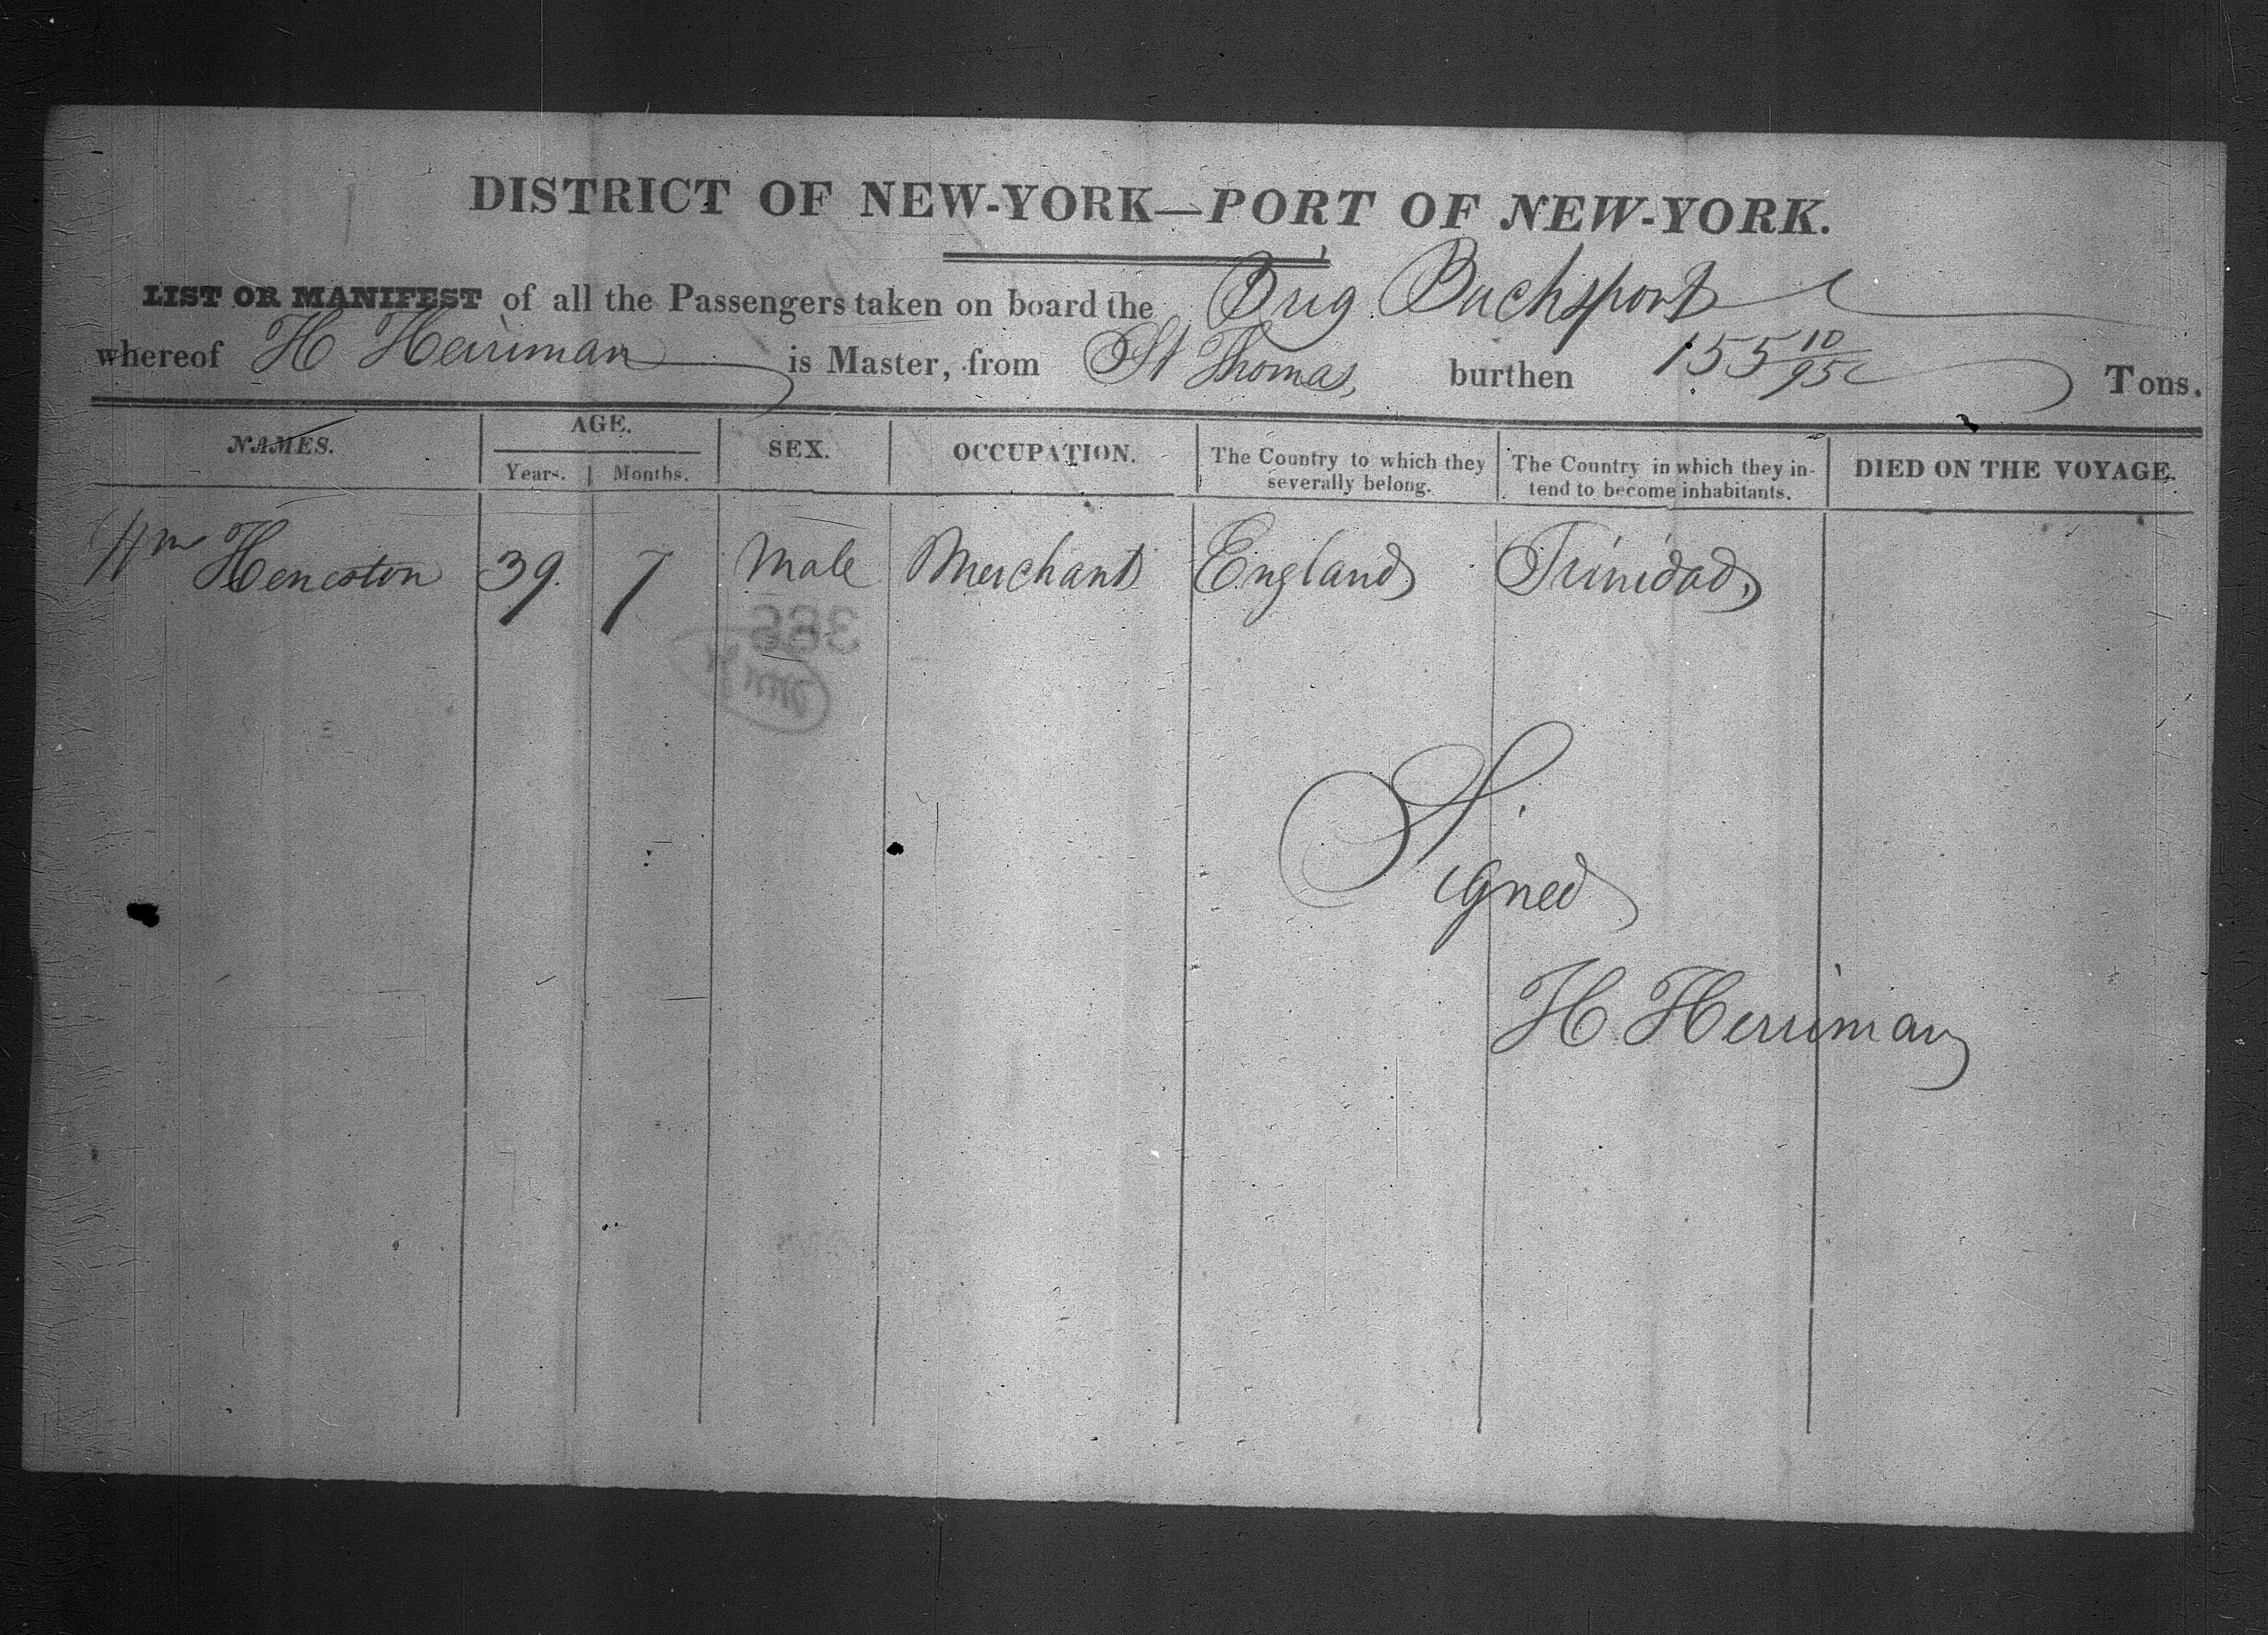 DISTRICT OF NEW-YORK—PORT OF NEW-YORK.
LIST OR MANIFEST of all the Passengers taken on board the Brig Buchsport
whereof H Herriman is Master, from St Thomas, burthen 155 10/95 Tons.
NAMES. AGE. Years. Months. SEX. OCCUPATION. The Country to which they severally belong. The Country in which they intend to become inhabitants. DIED ON THE VOYAGE.
Wm Heneston 39. 7 Male Merchant England Trinidad,
385
Signed
H. Herriman